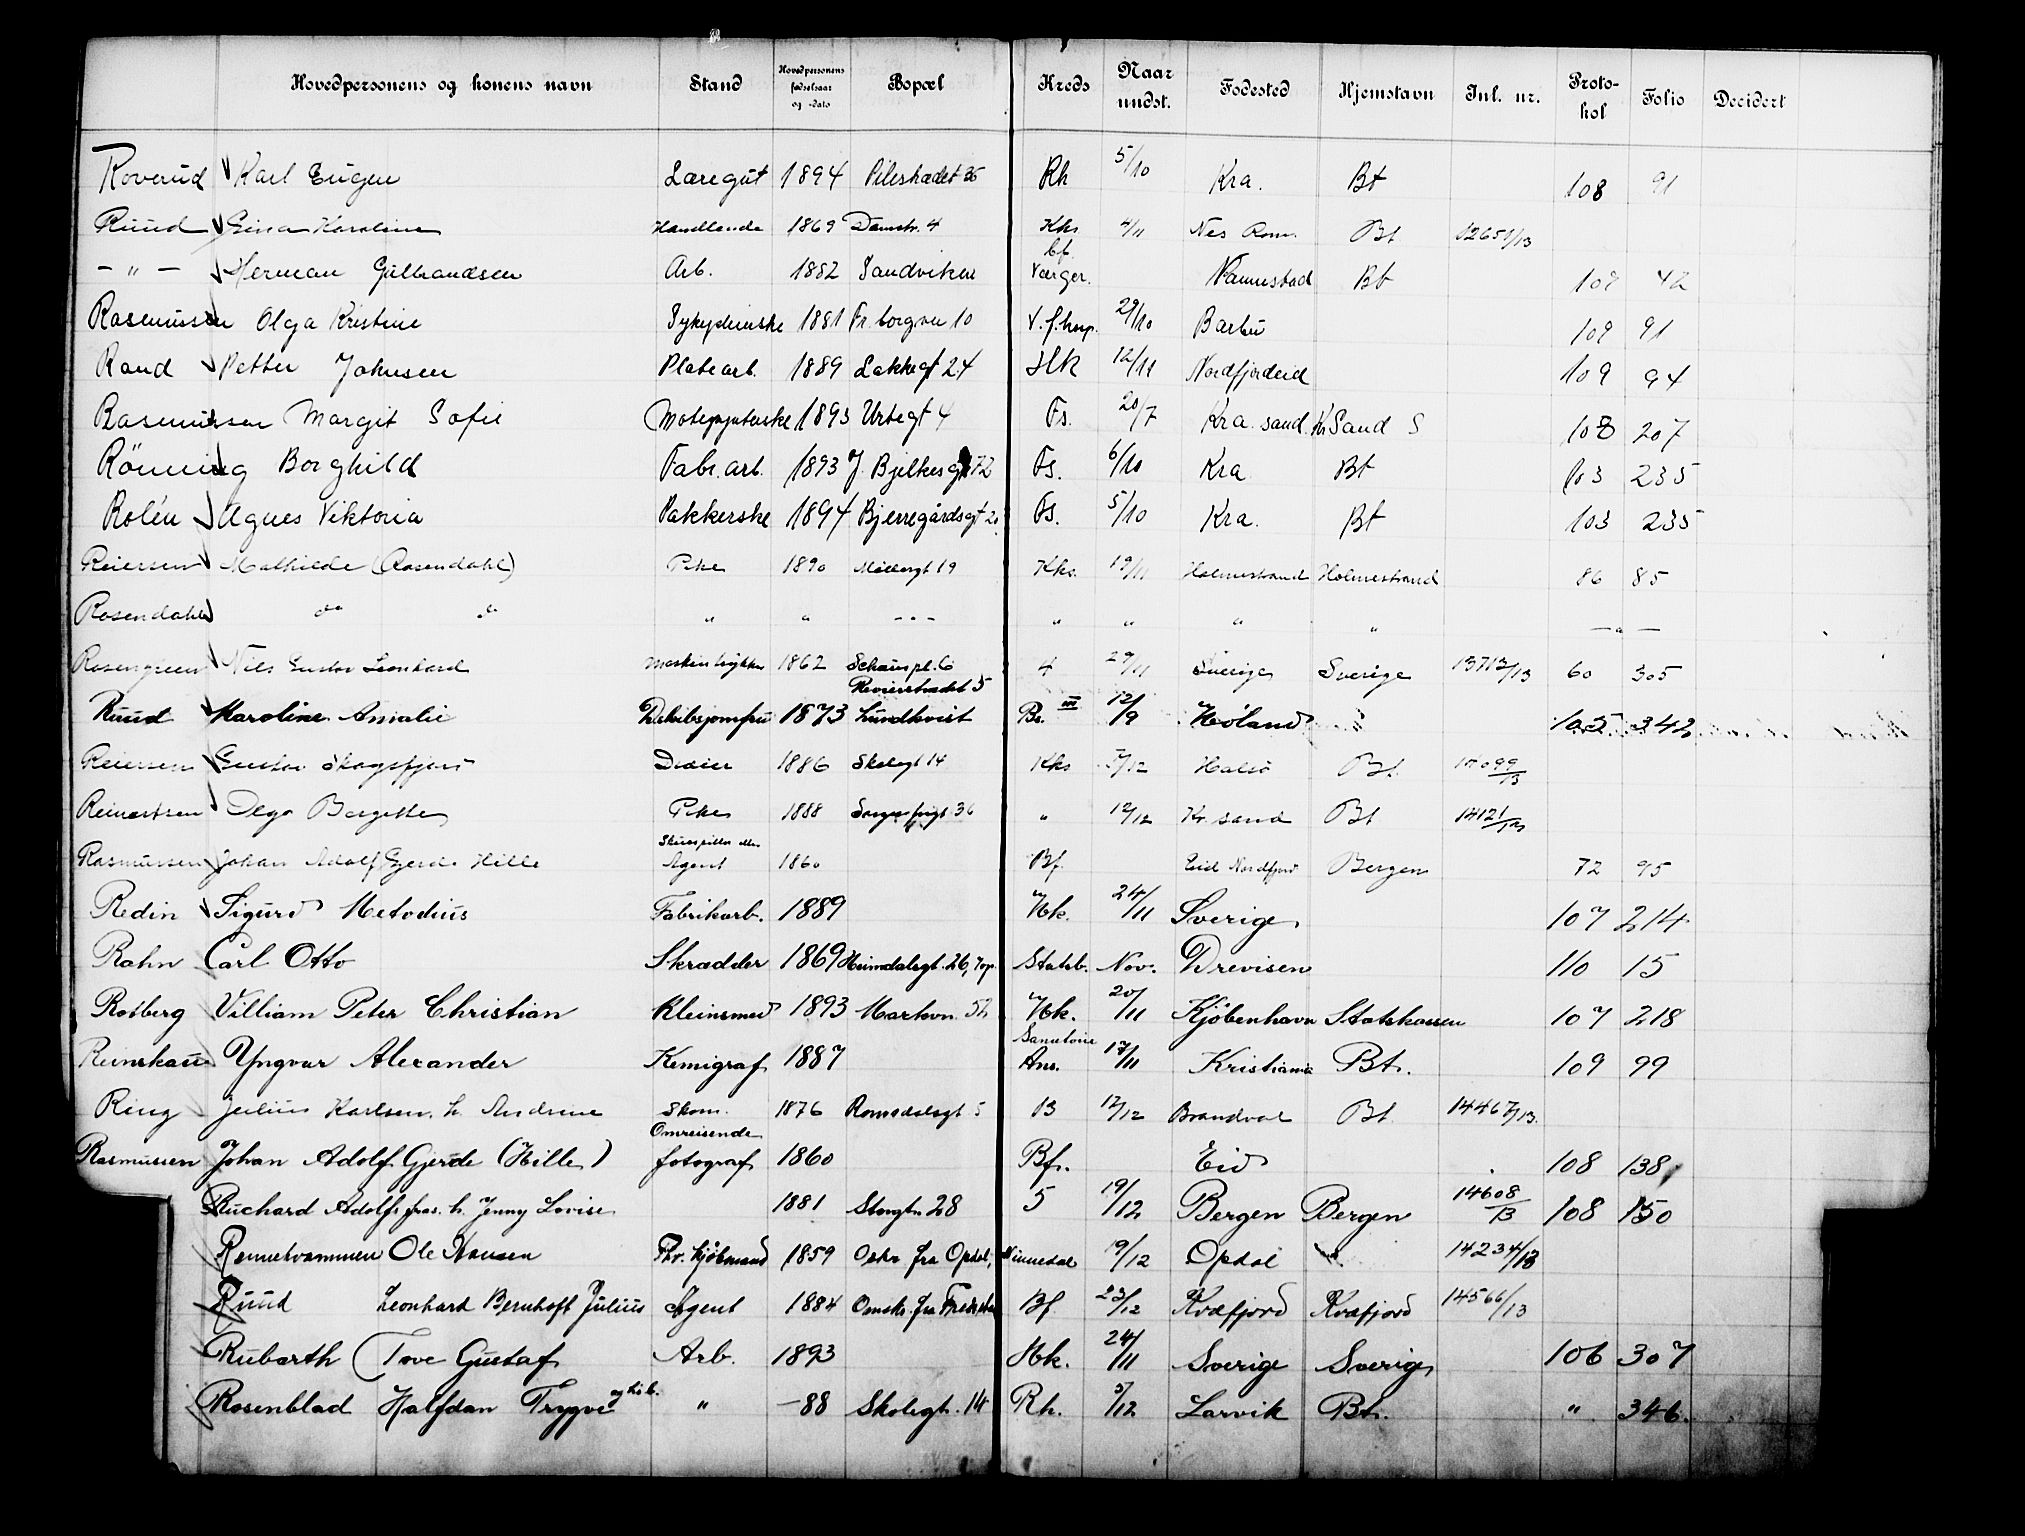 Hovedpersonens og konens navn Stand Hovedpersonens fødselsaar og -dato Bopæl Kreds Naar undst. Fødested Hjemstavn Inl. nr. Proto-kol Folio Decidert
Roverud Karl Eugen Læregut 1894 Pilestrædet 35 Rh 5/10 Kra. Bt 108 91
Ruud Gina Karoline Handlende 1869 Damstr. 4 Kks 4/11 Nes Rom. Bt 12651/13
— " — Herman Gulbrandsen Arb. 1882 Sandviken Bf. Værger. Nannestad Bt 42
Rasmussen Olga Kristine Sykepleierske 1881 Fr. borgvei 10 29/10 Barbu 109 91
Rand Petter Johnsen Platearb. 1889 Lakkegt 24 Hk 12/11 Nordfjordeid 109 94
Rasmussen Margit Sofie Motepynterske 1893 Urtegt 4 Fs. 20/7 Kra. sand. Kr Sand S 108 207
Rönning Borghild Fabr. arb. 1893 J. Bjelkesgt 72 Fs. 6/10 Kra Bt 103 235
Rolén Agnes Viktoria Pakkerske 1894 Bjerregårdsgt 20 Fs. 5/10 Kra. Bt 103 235
Reiersen Mathilde (Rosendahl) Pike 1890 Møllergt 19 Kks. 19/11 Holmestrand Holmestrand 86 85
Rosendahl " " " " — " — " " " " — " —
Rosengreen Nils Gustav Leonhard Maskintrykker 1862 Schouspl. 6 4 29/11 Sverige Sverige 13712/13 60 305
Revierstrædet 5
Ruud Karoline Amalie 1873 Lundkvist Bs. III 12/9 Høland " 105 342
Reiersen Gustav Skagefjord 1886 Skolegt 14 Kks 5/12 Halsø Bt. 14099/13
Reinertsen Olga Bergette Pike 1888 Sorgenfrigt 36 " 12/12 Kr. sand Bt 14121/13
Rasmussen Johan Adolf Gjerde Hille Skuespiller eller Agent 1860 Bf. Eid Nordfjord Bergen 72 95
Redin Sigurd Metodius Fabrikarb. 1889 Hk. 24/11 Sverige 107 214
Rahn Carl Otto Skrædder 1869 Heimdalsgt. 26, Statsb. Nov. Drevisen 110 15
Rotberg Villiam Peter Christian Kleinsmed 1893 Markvn. 52 Hk. 20/11 Kjøbenhavn Statskassen 107 218
Reinskau Yngvar Alexander Kemigraf 1887 Sanatorie Ans. 17/11 Kristiania Bt. 109 99
Ring Julius Karlsen, h. Andrine Skom. 1876 Romsdalsgt 5 13 12/12 Brandval Bt. 14467/13
Rasmussen Johan Adolf Gjerde (Hille) Omreisende fotograf 1860 Bf. Eid 108 138
Ruchard Adolf fras. h. Jenny Lovise 1881 Storgtn 28 5 19/12 Bergen Bergen 14608/13 108 150
Rennetvammen Ole Hansen Fhv. kjøbmand 1859 Oskr fra Opdal, Numedal 19/12 Opdal " 14234/13
Ruud Leonhard Bernhoft Julius Agent 1884 Omstr. fra Bf. 23/12 Kvæfjord Kvæfjord 14566/13
Rubarth Tove Gustaf Arb. 1893 Hk. 24/11 Sverige Sverige 106 307
Rosenblad Halfdan Trygve " —88 Skolegt. 14 Rh. 5/12 Larvik Bt. " 346.